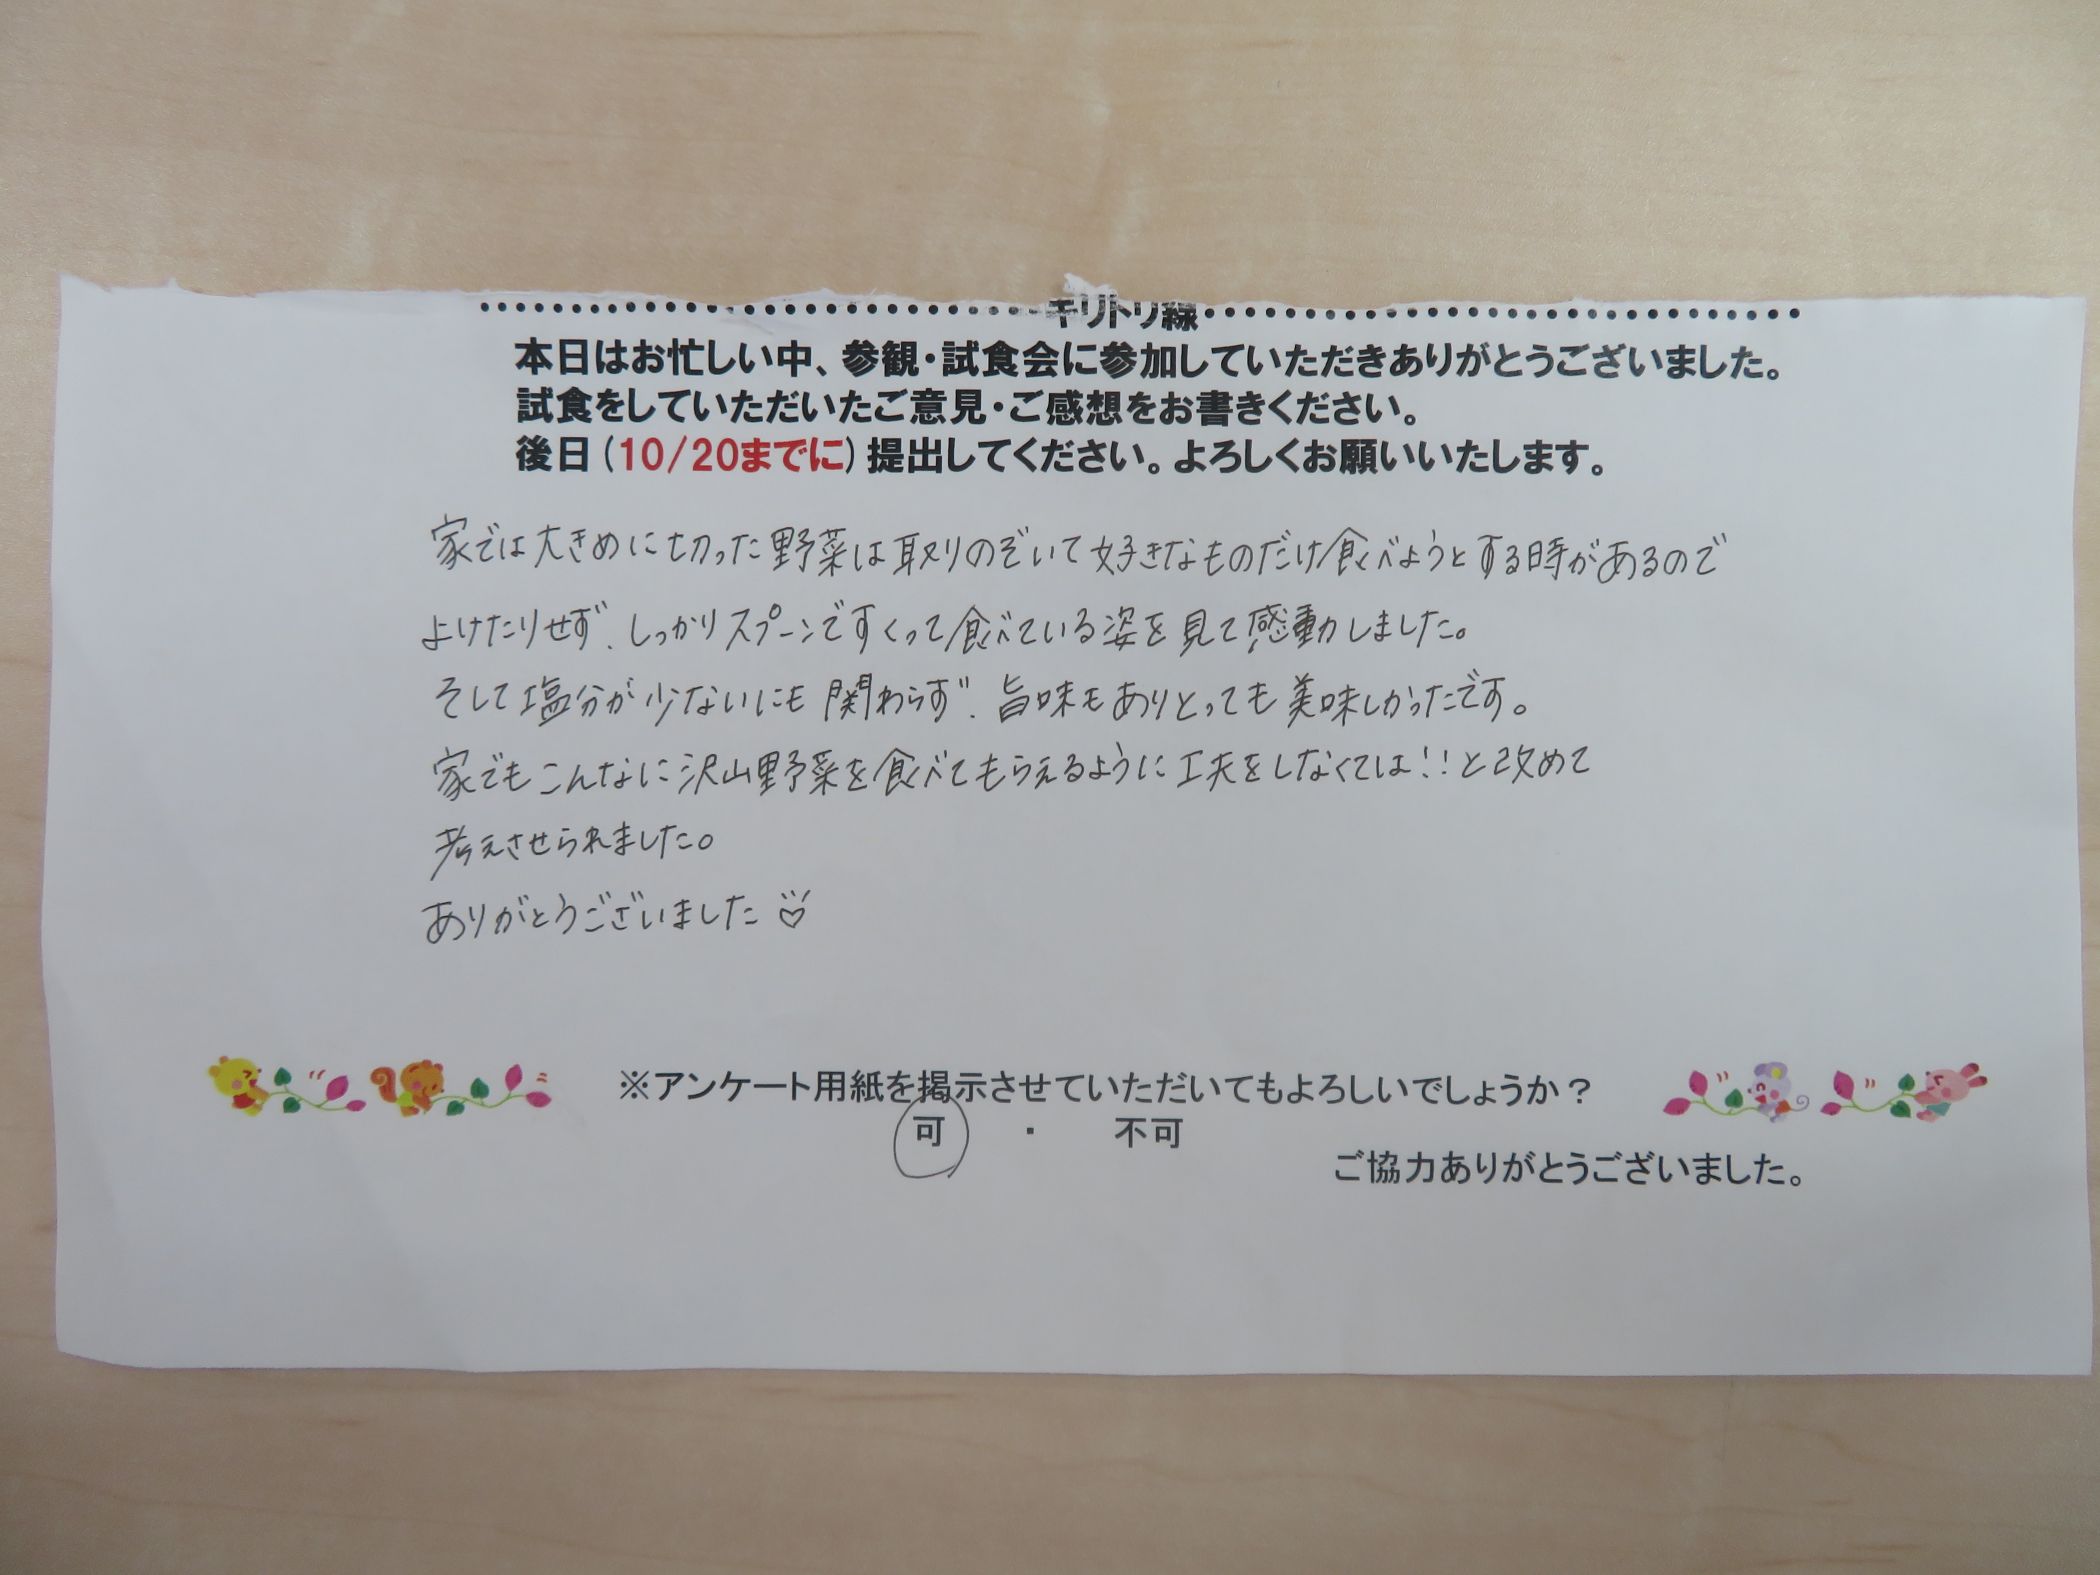 キリトリ線
本日はお忙しい中、参観・試食会に参加していただきありがとうございました。
試食をしていただいたご意見・ご感想をお書きください。
後日(10/20までに)提出してください。よろしくお願いいたします。
家では大きめに切った野菜は取りのぞいて好きなものだけ食べようとする時があるので
よけたりせず、しっかりスプーンですくって食べている姿を見て感動しました。
そして塩分が少ないにも関わらず、旨味もありとっても美味しかったです。
家でもこんなに沢山野菜を食べてもらえるように工夫をしなくては!!と改めて
考えさせられました。
ありがとうございました♡
※アンケート用紙を掲示させていただいてもよろしいでしょうか?
可 ・ 不可
ご協力ありがとうございました。